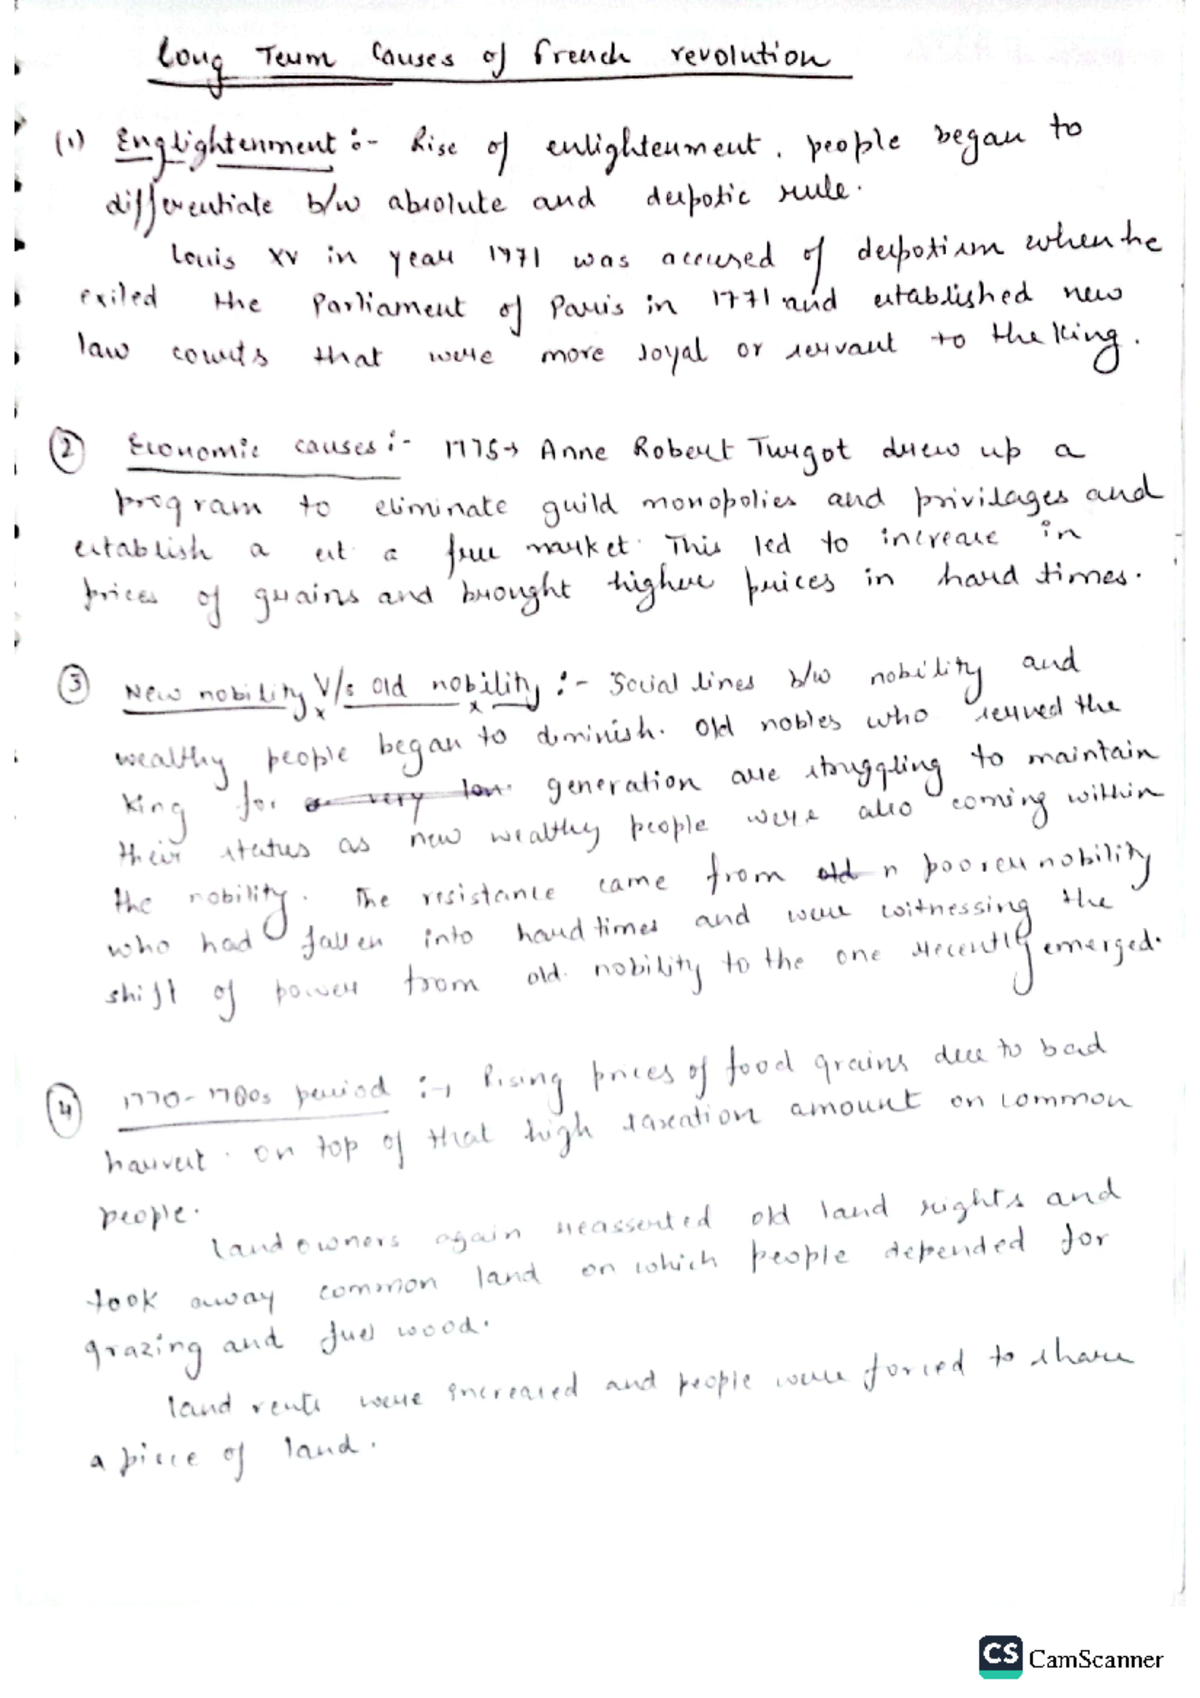 Long Term Causes of French revolution
(1) Englightenment :- Rise of enlightenment. people began to
differentiate b/w absolute and despotic rule.
Louis XV in year 1771 was accused of despotism when he
exiled the Parliament of Paris in 1771 and established new
law courts that were more loyal or servant to the King.
② Economic causes :- 1775→ Anne Robert Turgot drew up a
program to eliminate guild monopolies and privilages and
establish a est a free market. This led to increase in
prices of grains and brought higher prices in hard times.
③ New nobility V/s old nobility :- Social lines b/w nobility and
wealthy people began to diminish. Old nobles who served the
King for very lon generation are struggling to maintain
their status as new wealthy people were also coming within
the nobility. The resistance came from old n poorer nobility
who had fallen into hard times and were witnessing the
shift of power from old nobility to the one recently emerged.
④ 1770-1780s period :→ Rising prices of food grains due to bad
harvest. On top of that high taxation amount on common
people.
Land owners again reasserted old land rights and
took away common land on which people depended for
grazing and fuel wood.
Land rents were increased and people were forced to share
a piece of land.
CS CamScanner